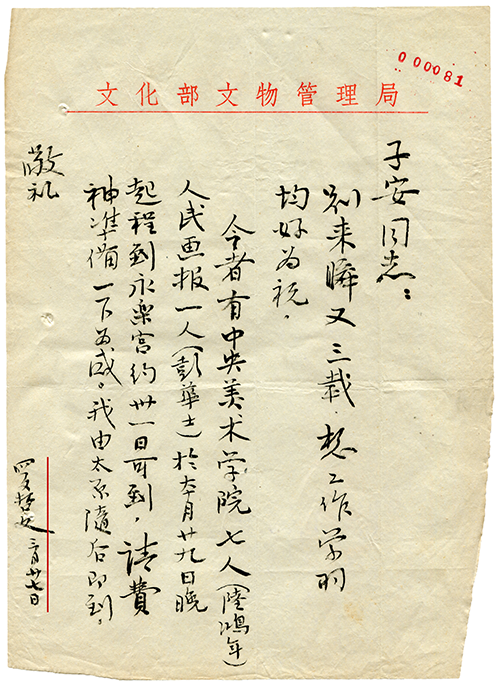 000081
文化部文物管理局
子安同志：
别来瞬又三载，想工作学习
均好为祝。
今者有中央美术学院七人（陆鸿年）
人民画报一人（彭华士）于本月廿九日晚
起程到永乐宫约卅一日可到，请费
神准备一下为感。我由太原随后即到。
敬礼
罗哲文 三月廿七日